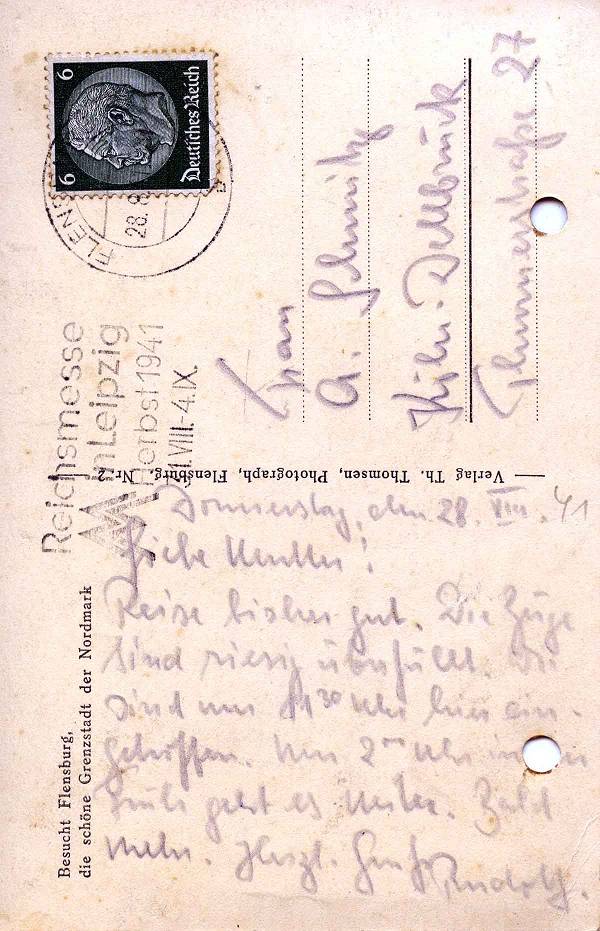 6
6
Deutsches Reich
FLENS
28.8
Reichsmesse
in Leipzig
Herbst 1941
31.VIII.-4.IX.
Frau
A. Schmitz
Köln-Dellbrück
Thurnerstraße 27
— Verlag Th. Thomsen, Photograph, Flensburg, Nr. 2 —
Besucht Flensburg,
die schöne Grenzstadt der Nordmark
Donnerstag, den 28. VIII. 41
Liebe Mutter!
Reise bisher gut. Die Züge
sind riesig überfüllt. Wir
sind um 11 30 Uhr hier ein-
getroffen. Um 2 Uhr
früh geht es weiter. Bald
mehr. Herzl. Gruß Rudolf.